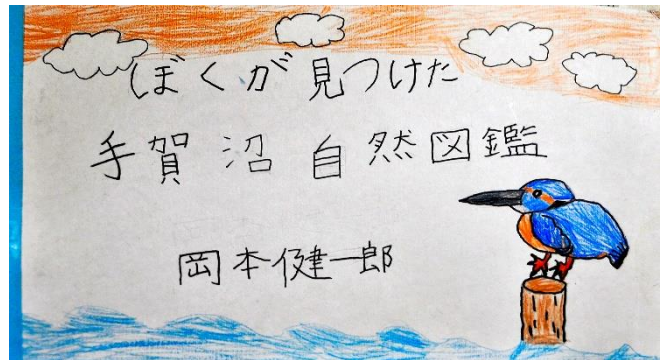 ぼくが見つけた
手賀沼自然図鑑
岡本健一郎